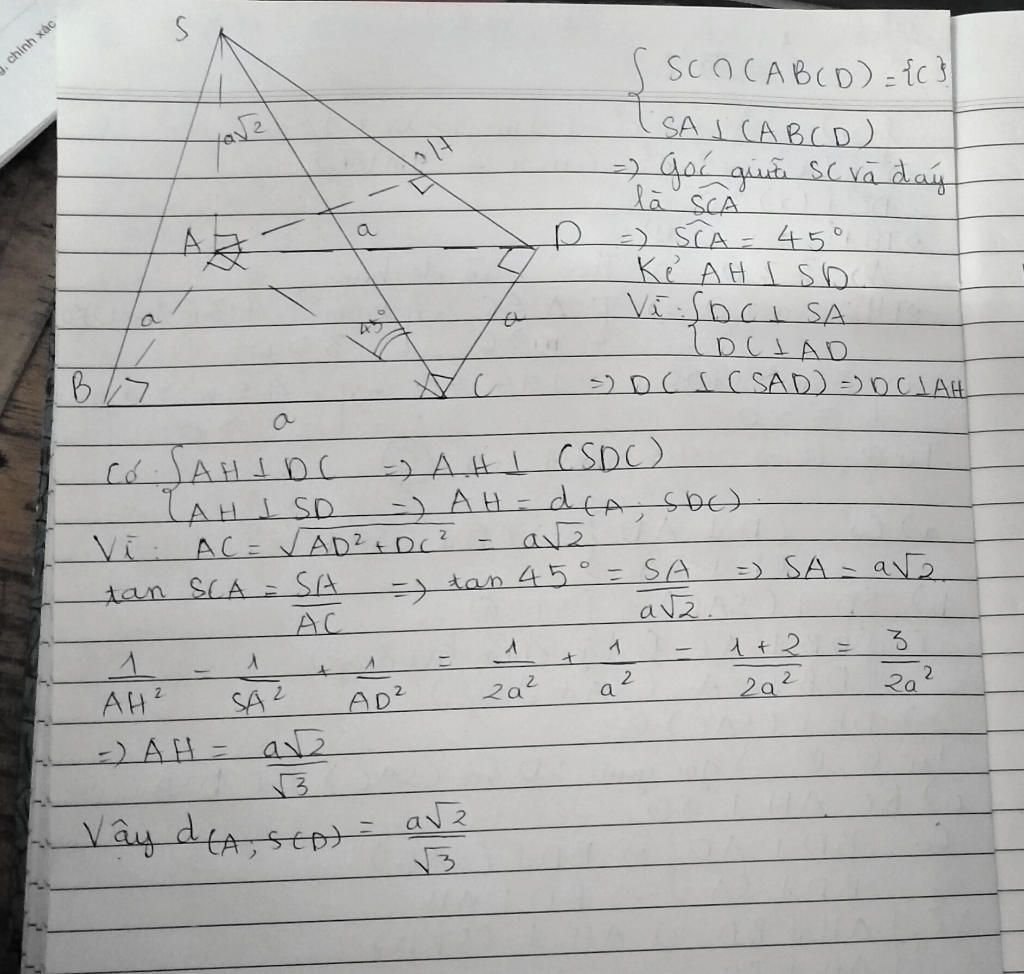 g, chính xác
S
a√2
H
A
a
D
a
45°
a
B
C
a
{ SC∩(ABCD)={C}
{ SA⊥(ABCD)
=) Góc giữa SC và đáy
là SCA
=) SCA = 45°
Kẻ AH ⊥ SD
Vì: { DC ⊥ SA
{ DC ⊥ AD
=) DC ⊥ (SAD) =) DC⊥AH
Có: { AH ⊥ DC =) AH ⊥ (SDC)
{ AH ⊥ SD =) AH = d(A; SDC).
Vì: AC = √AD²+DC² = a√2
tan SCA = SA/AC =) tan 45° = SA/a√2. =) SA = a√2.
1/AH² = 1/SA² + 1/AD² = 1/2a² + 1/a² = 1+2/2a² = 3/2a²
=) AH = a√2/√3
Vây d(A; SCD) = a√2/√3